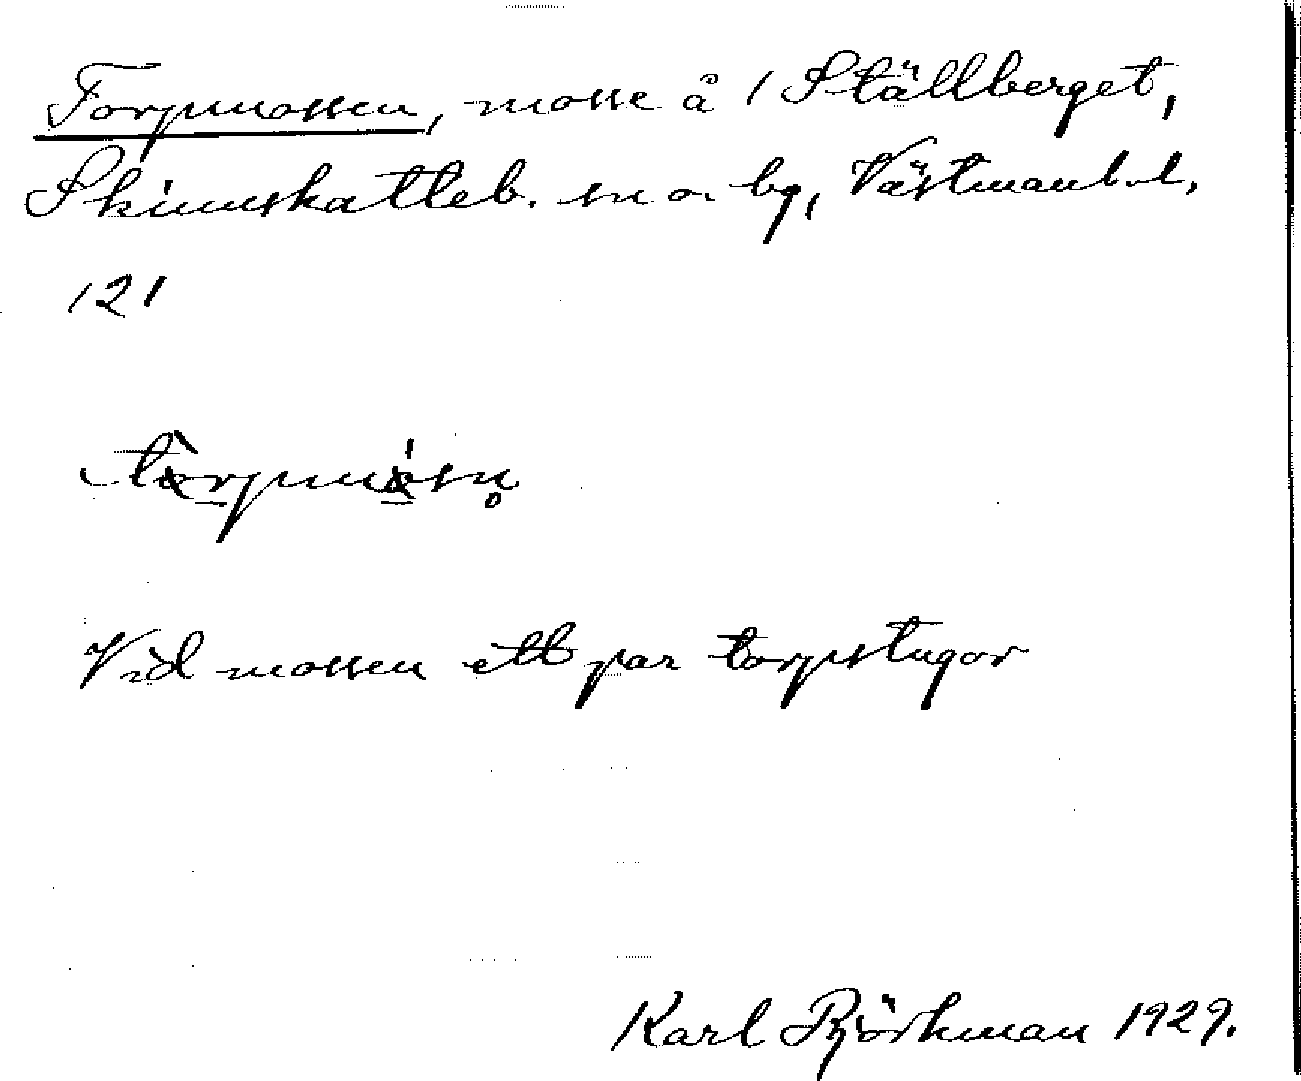 Torpmossen, mosse å 1 Ställberget,
Skinnskatteb. sn o. bg, Västmanl. l.
121
Vid mossen ett par torpstugor
Karl Björkman 1929.